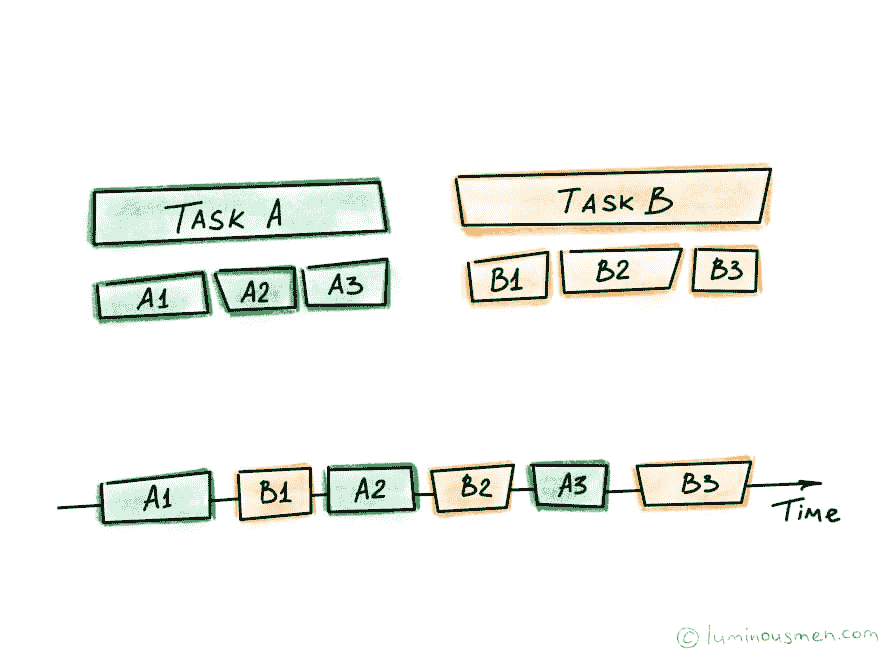 TASK A
TASK B
A1 A2 A3
B1 B2 B3
A1 B1 A2 B2 A3 B3
TIME
© luminousmen.com